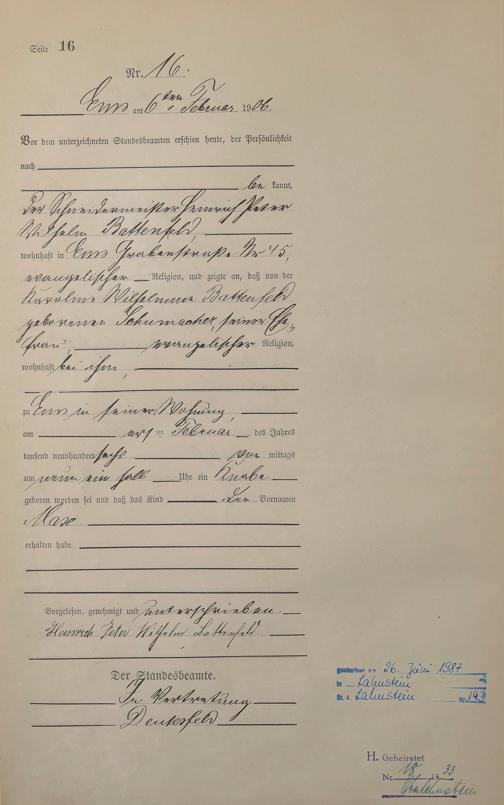 Seite 16
Nr. 16.
Ems am 6ten Februar 1906.
Vor dem unterzeichneten Standesbeamten erschien heute, der Persönlichkeit
nach
be kannt,
der Schneidermeister Heinrich Peter
Wilhelm Battenfeld,
wohnhaft in Ems Grabenstraße Nr 45,
evangelischer Religion, und zeigte an, daß von der
Karoline Wilhelmine Battenfeld
geborenen Schumacher, seiner Ehe„
frau, evangelischer Religion,
wohnhaft bei ihm,
zu Ems in seiner Wohnung,
am ersten Februar des Jahres
tausend neunhundert sechs vor mittags
um neun ein halb Uhr ein Knabe
geboren worden sei und daß das Kind den Vornamen
Max
erhalten habe.
Vorgelesen, genehmigt und unterschrieben.
Heinrich Peter Wilhelm Battenfeld.
Der Standesbeamte.
In Vertretung
gestorben am 26. Juni 1987
in Lahnstein
St. A. Lahnstein Nr. 143
H. Geheiratet
Nr. 18 1933
Oberlahnstein